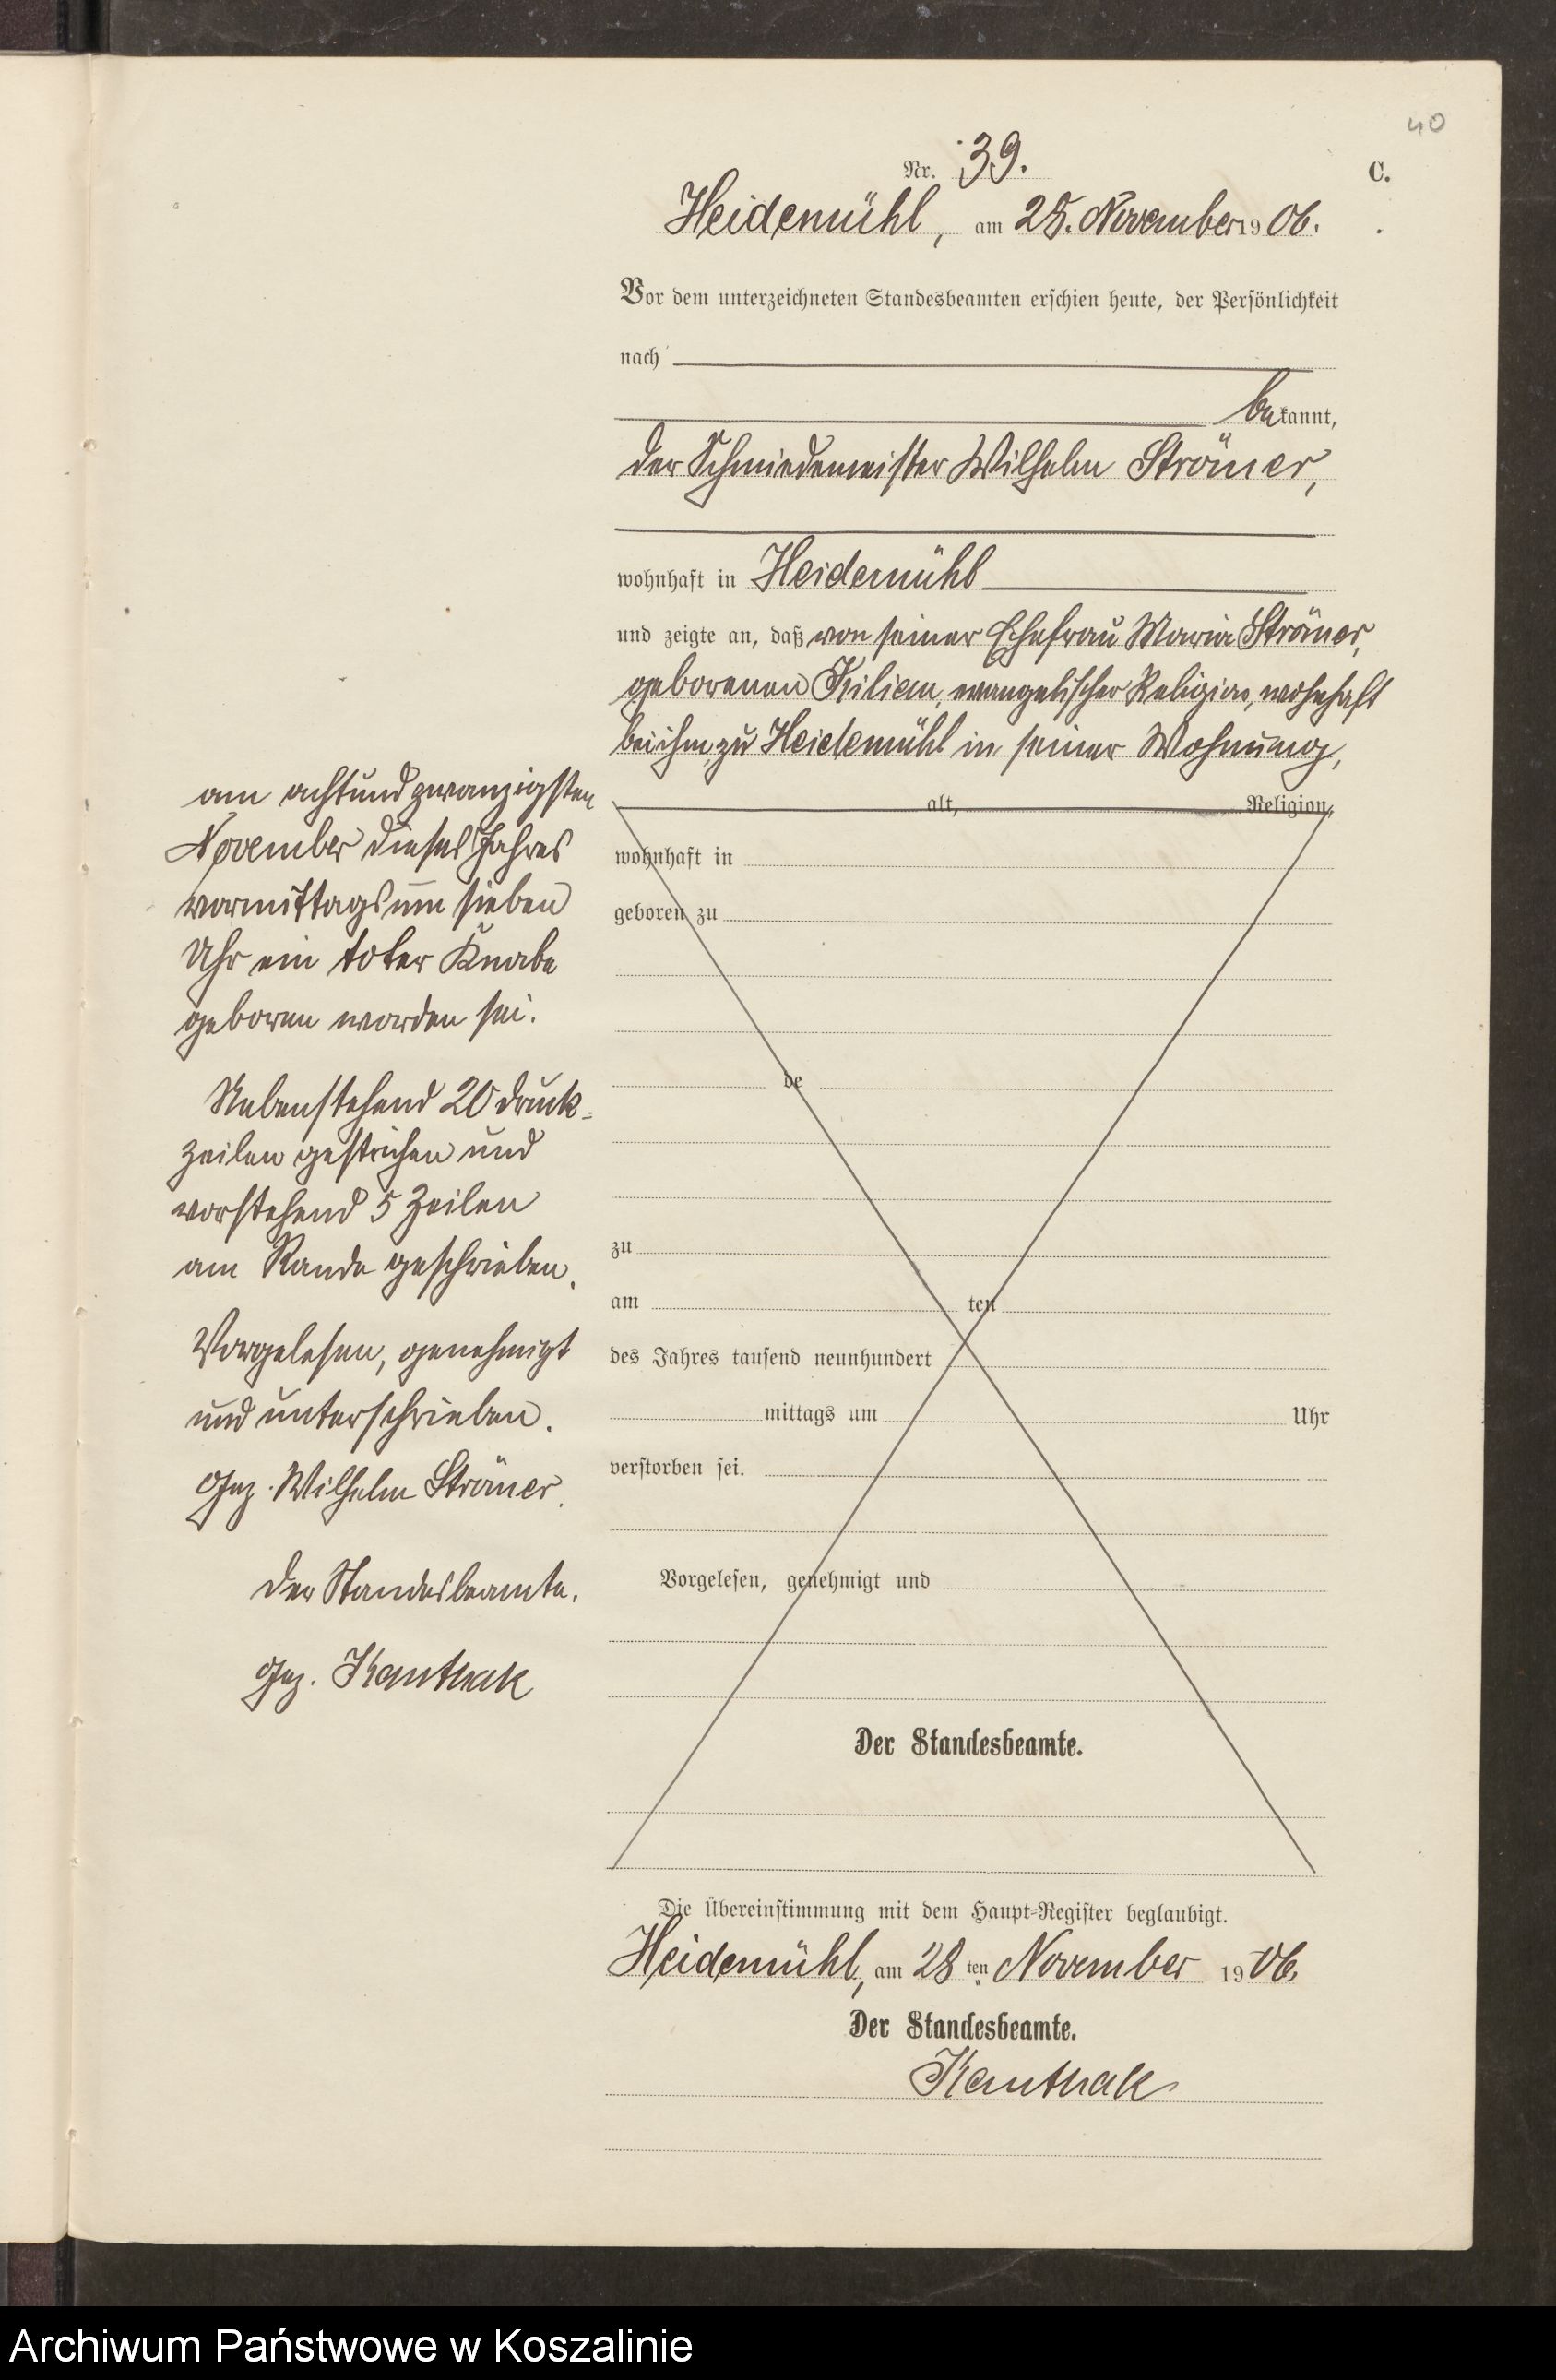 40
Nr. 39.
C.
Heidemühl, am 28. November 1906.
Vor dem unterzeichneten Standesbeamten erschien heute, der Persönlichkeit
nach
bekannt,
der Schmiedemeister Wilhelm Strömer,
wohnhaft in Heidemühl
und zeigte an, daß von seiner Ehefrau Maria Strömer,
geborenen Kilian, evangelischer Religion, wohnhaft
bei ihm, zu Heidemühl in seiner Wohnung,
am achtundzwanzigsten
November dieses Jahres
vormittags um sieben
Uhr ein toter Knabe
geboren worden sei.
Nebenstehend 20 Druck-
zeilen gestrichen und
vorstehend 5 Zeilen
am Rande geschrieben.
Vorgelesen, genehmigt
und unterschrieben.
Gez. Wilhelm Strömer.
Der Standesbeamte.
Gez. Kanthak
alt, Religion,
wohnhaft in
geboren zu
de
zu
am ten
des Jahres tausend neunhundert
mittags um Uhr
verstorben sei.
Vorgelesen, genehmigt und
Der Standesbeamte.
Die Übereinstimmung mit dem Haupt-Register beglaubigt.
Heidemühl, am 28 ten November 1906.
Der Standesbeamte.
Kanthak
Archiwum Państwowe w Koszalinie